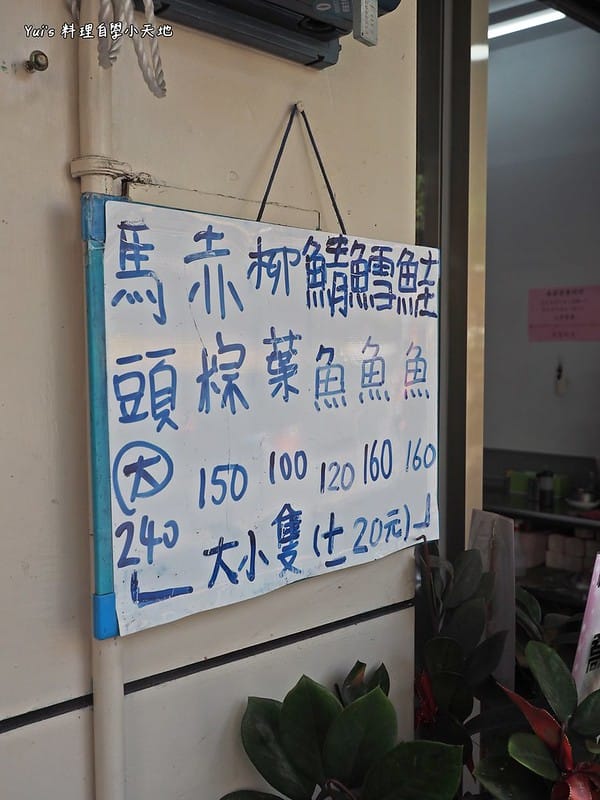 Yui's 料理自學小天地
馬頭 大 240
赤棕 150
柳葉 100
鯖魚 120
鱈魚 160
鮭魚 160
大小隻(±20元)